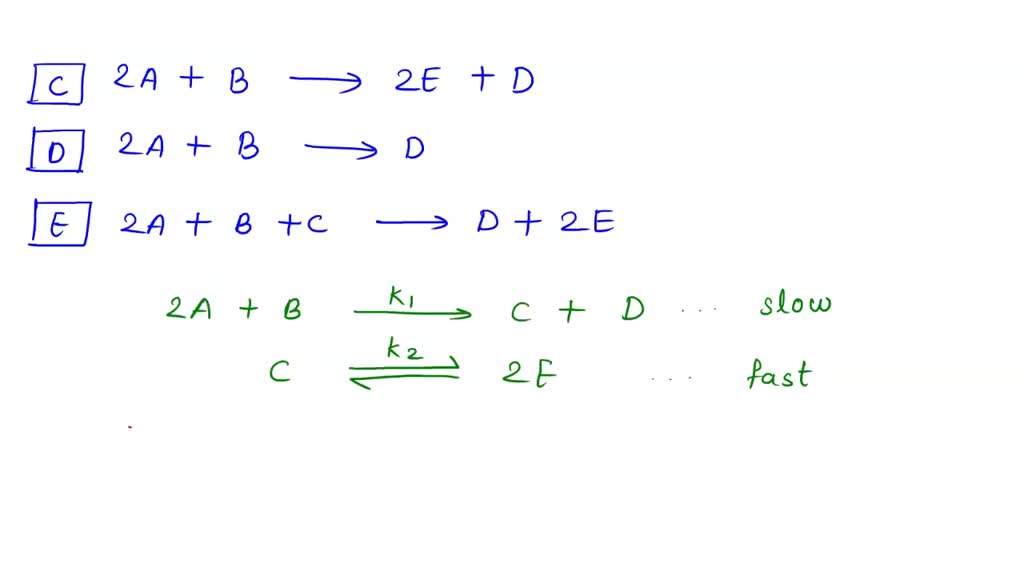 C 2A + B → 2E + D
D 2A + B → D
E 2A + B + C → D + 2E
2A + B →k₁ C + D ... slow
C ⇌k₂ 2E ... fast